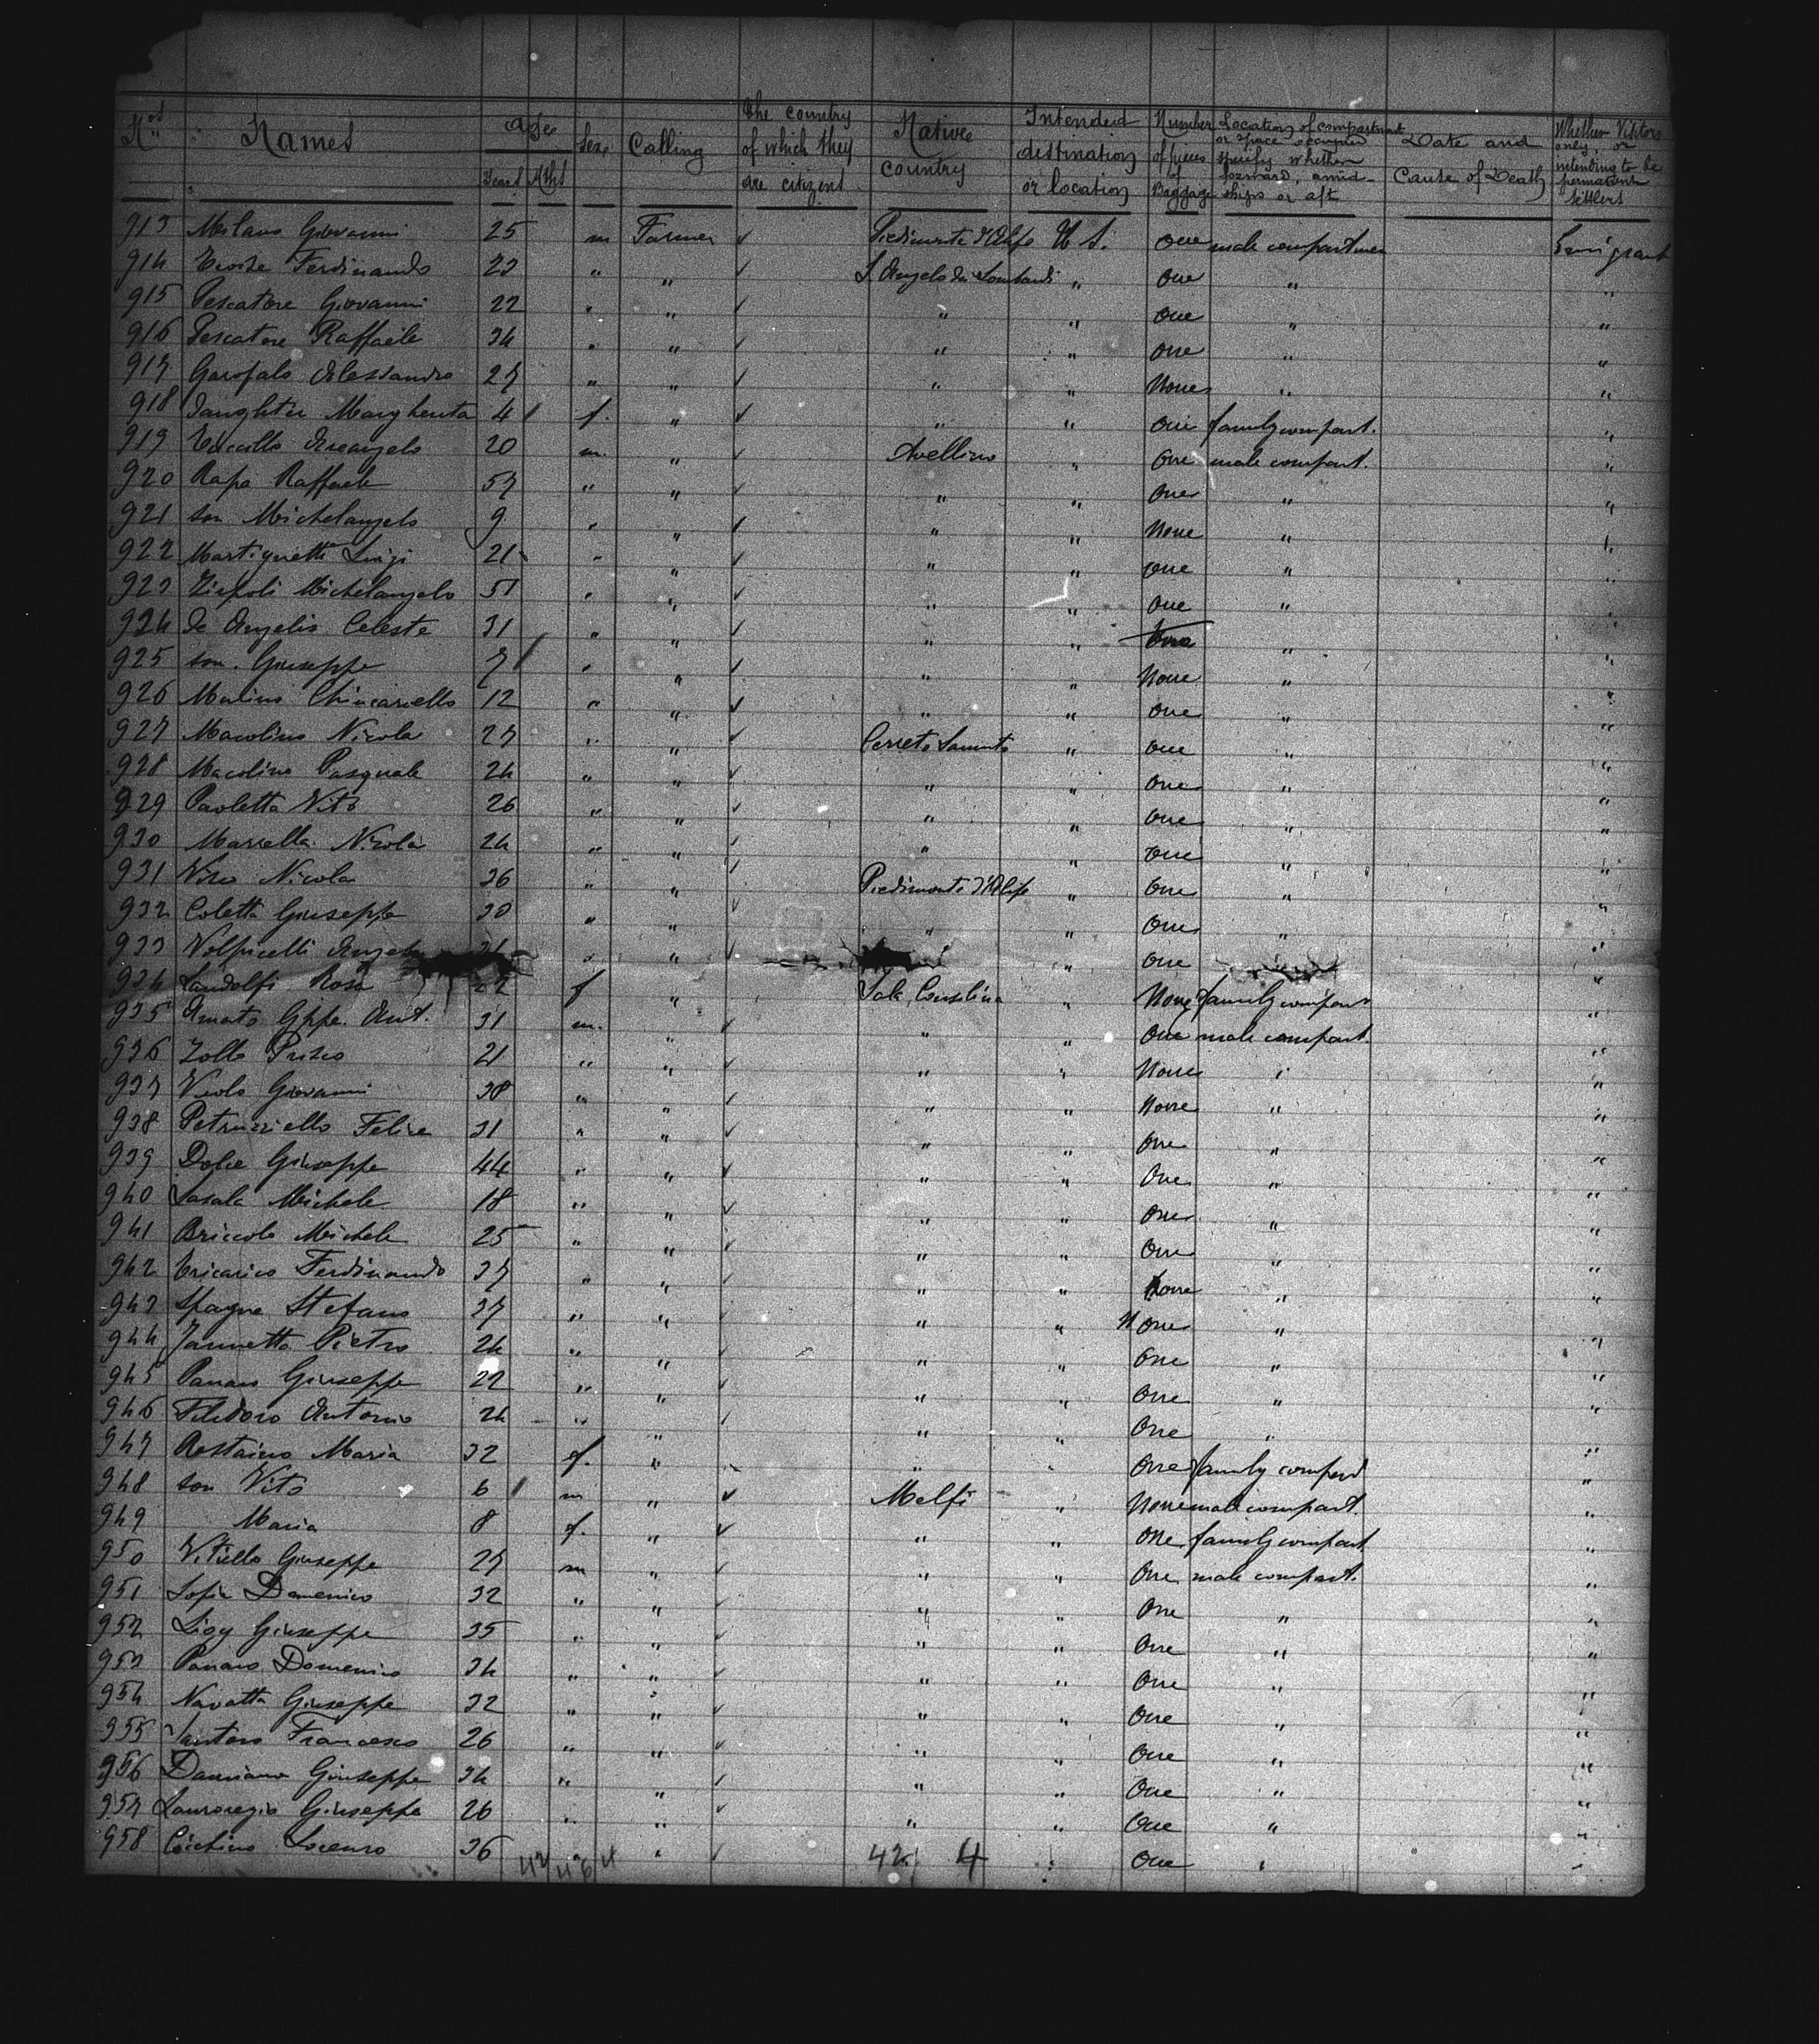 Nos Names Age Years Mths Sex Calling The country of which they are citizens Native country Intended destination or location Number of pieces of Baggage Location of compartment or space occupied specify whether forward, amidships or aft Date and Cause of Death Whether Visitors only, or intending to be permanent settlers
913 Milano Giovanni 25 m Farmer ✓ Piedimonte d'Alife U S. One male compartmen Emigrant
914 Ferdinando 23 " " ✓ S. Angelo dei Lombardi " One " "
915 Pescatore Giovanni 22 " " ✓ " " One " "
916 Pescatore Raffaele 34 " " ✓ " " One " "
917 Garofalo Alessandro 27 " " ✓ " " None " "
918 daughter Margherita 4 f. " ✓ " " One family compart. "
919 Arcangelo 20 m. " ✓ Avellino " One male compart. "
920 Rapa Raffaele 57 " " ✓ " " One " "
921 son Michelangelo 9 " " ✓ " " None " "
922 Martignetti Luigi 21 " " ✓ " " One " "
923 Michelangelo 51 " " ✓ " " One " "
924 de Angelis Celeste 31 " " ✓ " " " "
925 son. Giuseppe 7 " " ✓ " " None " "
926 Molino Chiucariello 12 " " ✓ " " One " "
927 Macolino Nicola 27 " " ✓ Cerreto Sannito " One " "
928 Macolino Pasquale 24 " " ✓ " " One " "
929 Paoletta Vito 26 " " ✓ " " One " "
930 Marcella Nicola 24 " " ✓ " " One " "
931 Viso Nicola 36 " " ✓ Piedimonte d'Alife " One " "
932 Coletta Giuseppe 30 " " ✓ " " One " "
933 Volpicelli " " ✓ " One " "
934 Landolfi Rosa 22 f " Sala Consilina " None family compart "
935 Amato Gippe. Ant. 31 m. " ✓ " " One male compart. "
936 Zollo Prisco 21 " " ✓ " " None " "
937 Giovanni 38 " " ✓ " " None " "
938 Petruzziello Felice 31 " " ✓ " " One " "
939 Dolce Giuseppe 44 " " ✓ " " One " "
940 Lasala Michele 18 " " ✓ " " One " "
941 Briccolo Michele 25 " " ✓ " " One " "
942 Tricarico Ferdinando 37 " " ✓ " " None " "
943 Spagna Stefano 37 " " ✓ " " None " "
944 Jannetta Pietro 24 " " ✓ " " One " "
945 Panaro Giuseppe 22 " " ✓ " " One " "
946 Filidoro Antonio 24 " " ✓ " " One " "
947 Restaino Maria 32 f. " " One family compart "
948 son Vito 6 m " ✓ Melfi " None male compart. "
949 Maria 8 f. " ✓ " " One family compart "
950 Vitiello Giuseppe 27 m " ✓ " " One male compart. "
951 Sofia Domenico 32 " " ✓ " " One " "
952 Lioy Giuseppe 35 " " ✓ " " One " "
953 Panaro Domenico 34 " " ✓ " " One " "
954 Navatta Giuseppe 32 " " ✓ " " One " "
955 Santoro Francesco 26 " " ✓ " " One " "
956 Damiano Giuseppe 34 " " ✓ " " One " "
957 Giuseppe 26 " " ✓ " " One " "
958 Cicchino Lorenzo 36 " ✓ " One " "
42 4